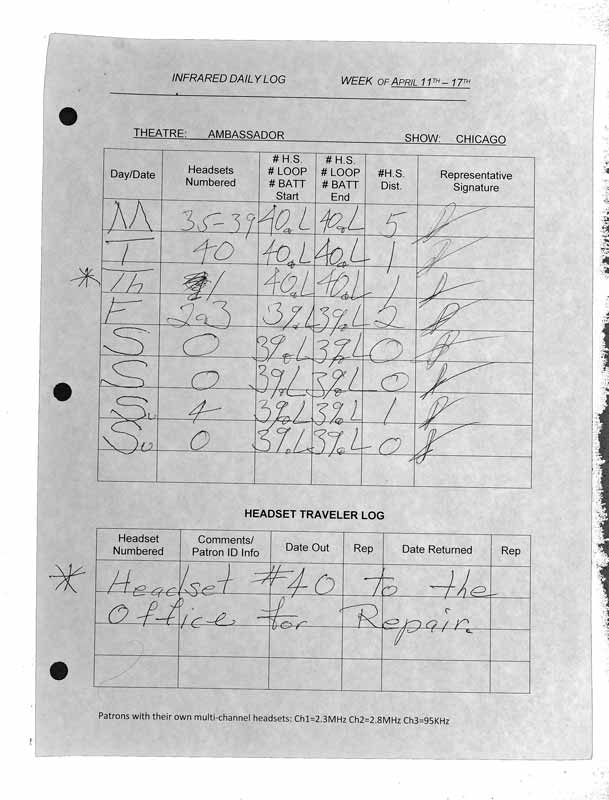 INFRARED DAILY LOG WEEK OF APRIL 11TH – 17TH
THEATRE: AMBASSADOR SHOW: CHICAGO
Day/Date Headsets Numbered # H.S. # LOOP # BATT Start # H.S. # LOOP # BATT End #H.S. Dist. Representative Signature
M 35-39 40 L 40 L 5
T 40 40 L 40 L 1
* Th 1 40 L 40 L 1
F 2a3 39 L 39 L 2
S 0 39 L 39 L 0
S 0 39 L 39 L 0
Su 4 39 L 39 L 1
Su 0 39 L 39 L 0
HEADSET TRAVELER LOG
Headset Numbered Comments/ Patron ID Info Date Out Rep Date Returned Rep
* Headset #40 to the
Office for Repair.
Patrons with their own multi-channel headsets: Ch1=2.3MHz Ch2=2.8MHz Ch3=95KHz